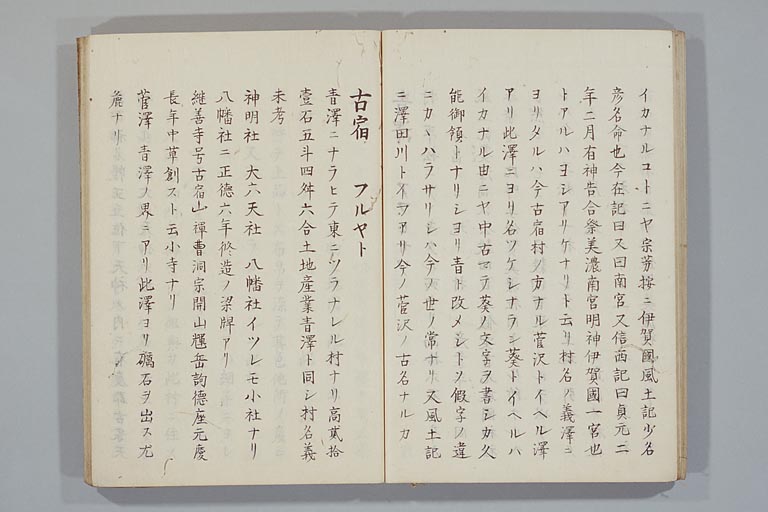 イカナルコトニヤ宗芳按ニ伊賀國風土記少名
彦名命也今在記曰又曰南宮又信西記曰貞元二
年二月有神告合祭美濃南宮明神伊賀國一宮也
トアルハヨシアリケナリト云リ村名ノ義澤ニ
ヨリタルハ今古宿村ノ方ナル菅沢トイヘル澤
アリ此澤ニヨリ名ツケシナラン葵トイヘルハ
イカナル由ニヤ中古マテ葵ノ文字ヲ書シカ久
能御領トナリシヨリ青ト改メシトソ假字ノ違
ニカヽハラサリシハ今ノ世ノ常ナリ又風土記
ニ澤田川トイヲアリ今ノ菅沢ノ古名ナルカ
古宿 フルヤト
青澤ニナラヒテ東ニツラナレル村ナリ高貳拾
壹石五斗四舛六合土地産業青澤ト同シ村名義
未考
神明社 大六天社 八幡社イツレモ小社ナリ
八幡社ニ正德六年修造ノ梁牌アリ
継善寺号古宿山禪曹洞宗開山 岳 德座元慶
長年中草創スト云小寺ナリ
菅澤 青澤ノ界ニアリ此澤ヨリ礪石ヲ出ス尤
麁ナリ